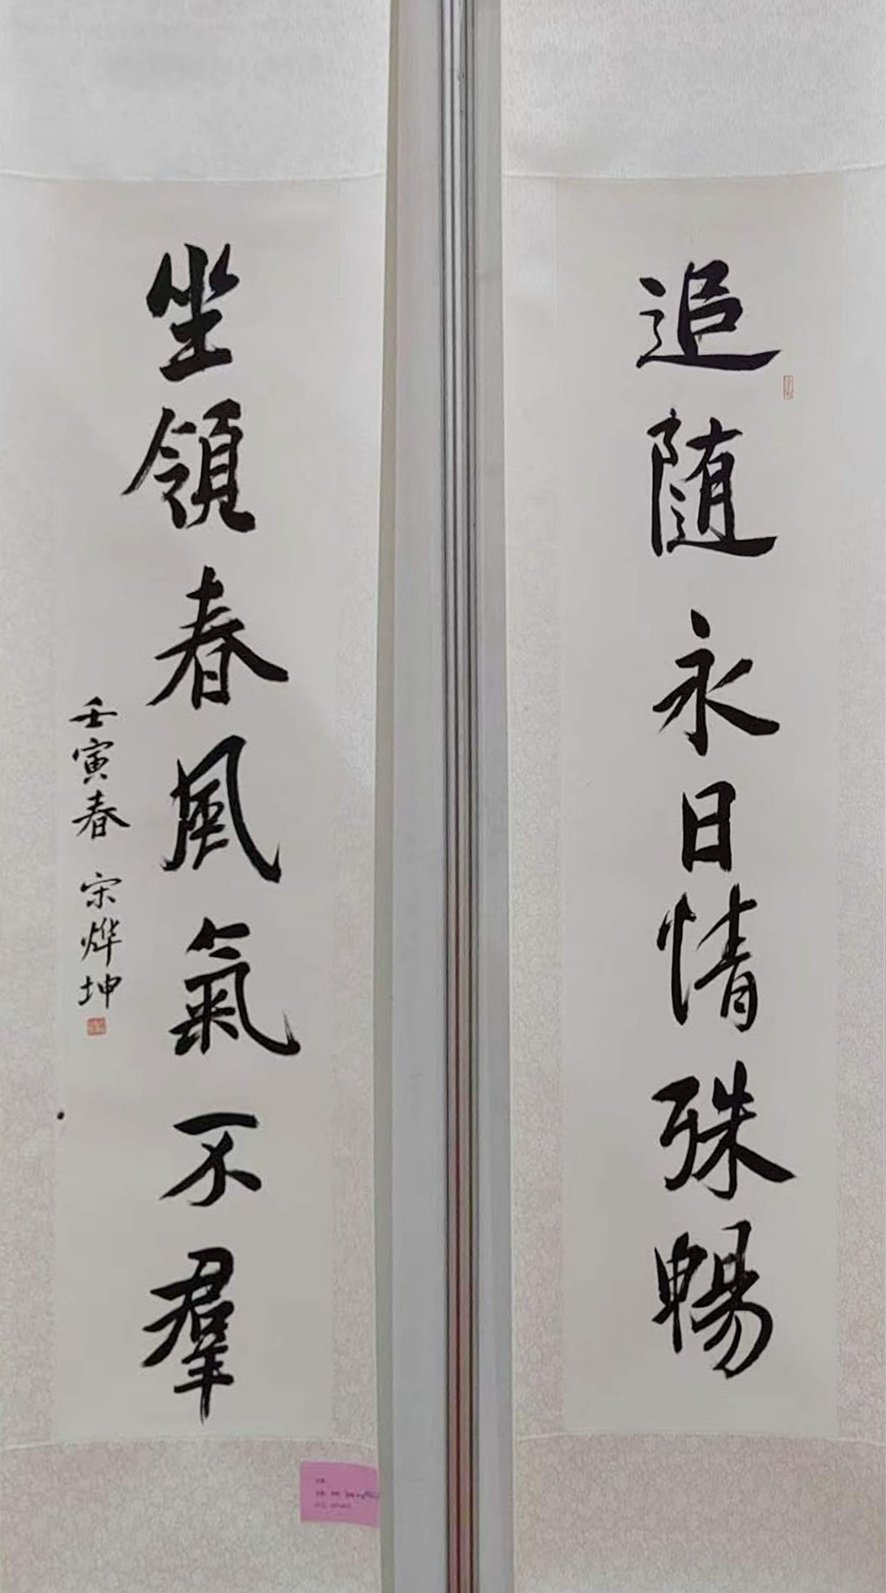 追随永日情殊暢
坐領春風氣不羣
壬寅春 宋燁坤